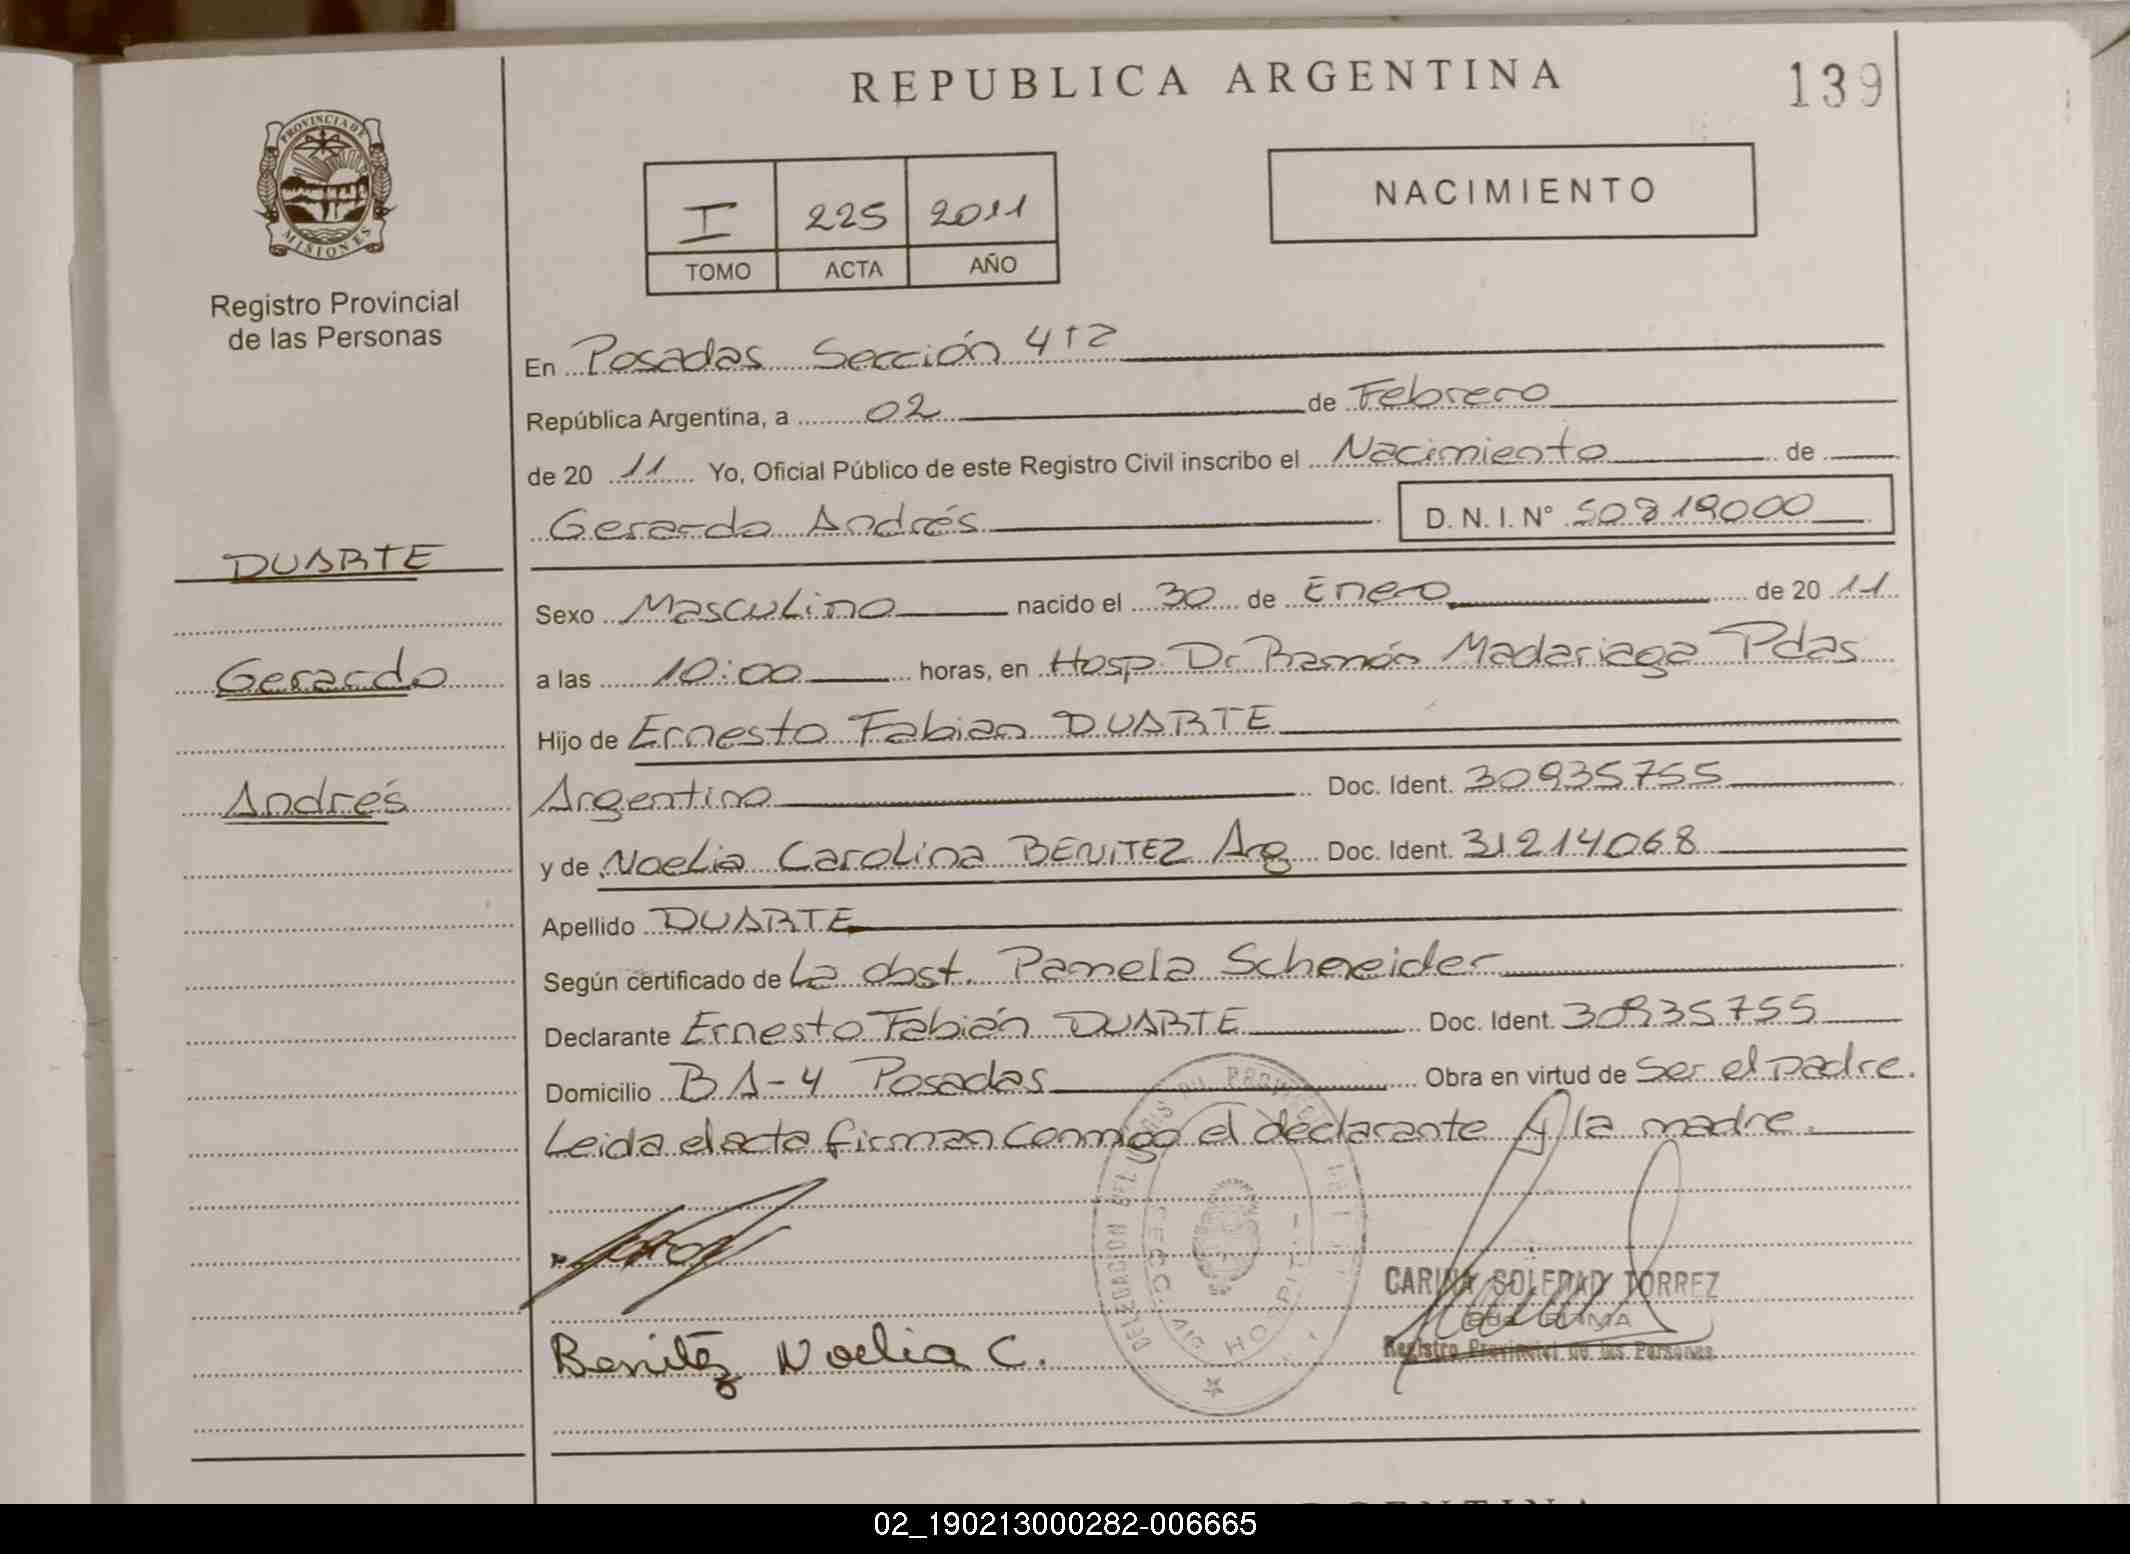 REPUBLICA ARGENTINA
139
PROVINCIA DE
MISIONES
Registro Provincial
de las Personas
I 225 2011
TOMO ACTA AÑO
NACIMIENTO
En Posadas Sección 4ta
República Argentina, a 02 de Febrero
de 20 11 Yo, Oficial Público de este Registro Civil inscribo el Nacimiento de
Gerardo Andrés D. N. I. N°
DUARTE
Gerardo
Andrés
Sexo Masculino nacido el 30 de Enero de 20 11
a las 10:00 horas, en Hosp. Dr Ramón Madariaga Pdas
Hijo de Ernesto Fabian DUARTE
Argentino Doc. Ident. 30935755
y de Noelia Carolina BENITEZ Arg Doc. Ident. 31214068
Apellido DUARTE
Según certificado de La obst. Pamela Schneider
Declarante Ernesto Fabián DUARTE Doc. Ident. 30935755
Domicilio BA-4 Posadas Obra en virtud de Ser el padre.
Leida el acta firman conmigo el declarante y la madre.
CARINA SOLEDAD TORREZ
Registro Provincial de las Personas
Benitez Noelia C.
02_190213000282-006665